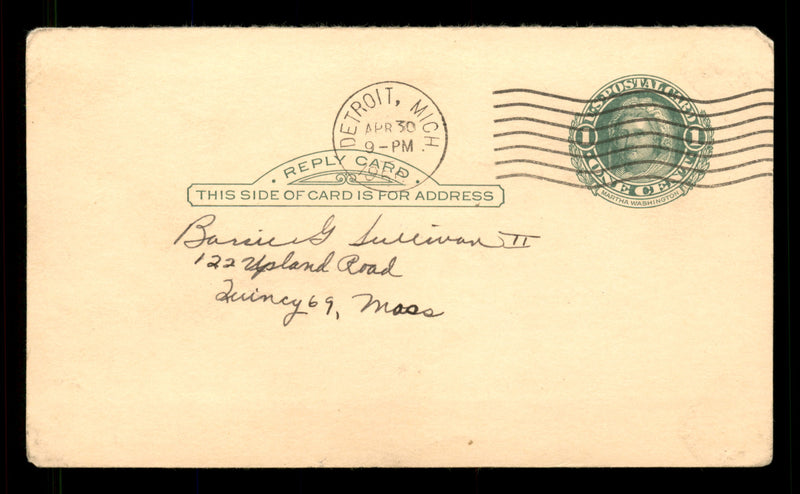 DETROIT, MICH
APR 30
9-PM
U.S. POSTAL CARD
1 1
ONE CENT
MARTHA WASHINGTON
REPLY CARD
THIS SIDE OF CARD IS FOR ADDRESS
G Sullivan II
122 Upland Road
Quincy 69, Mass